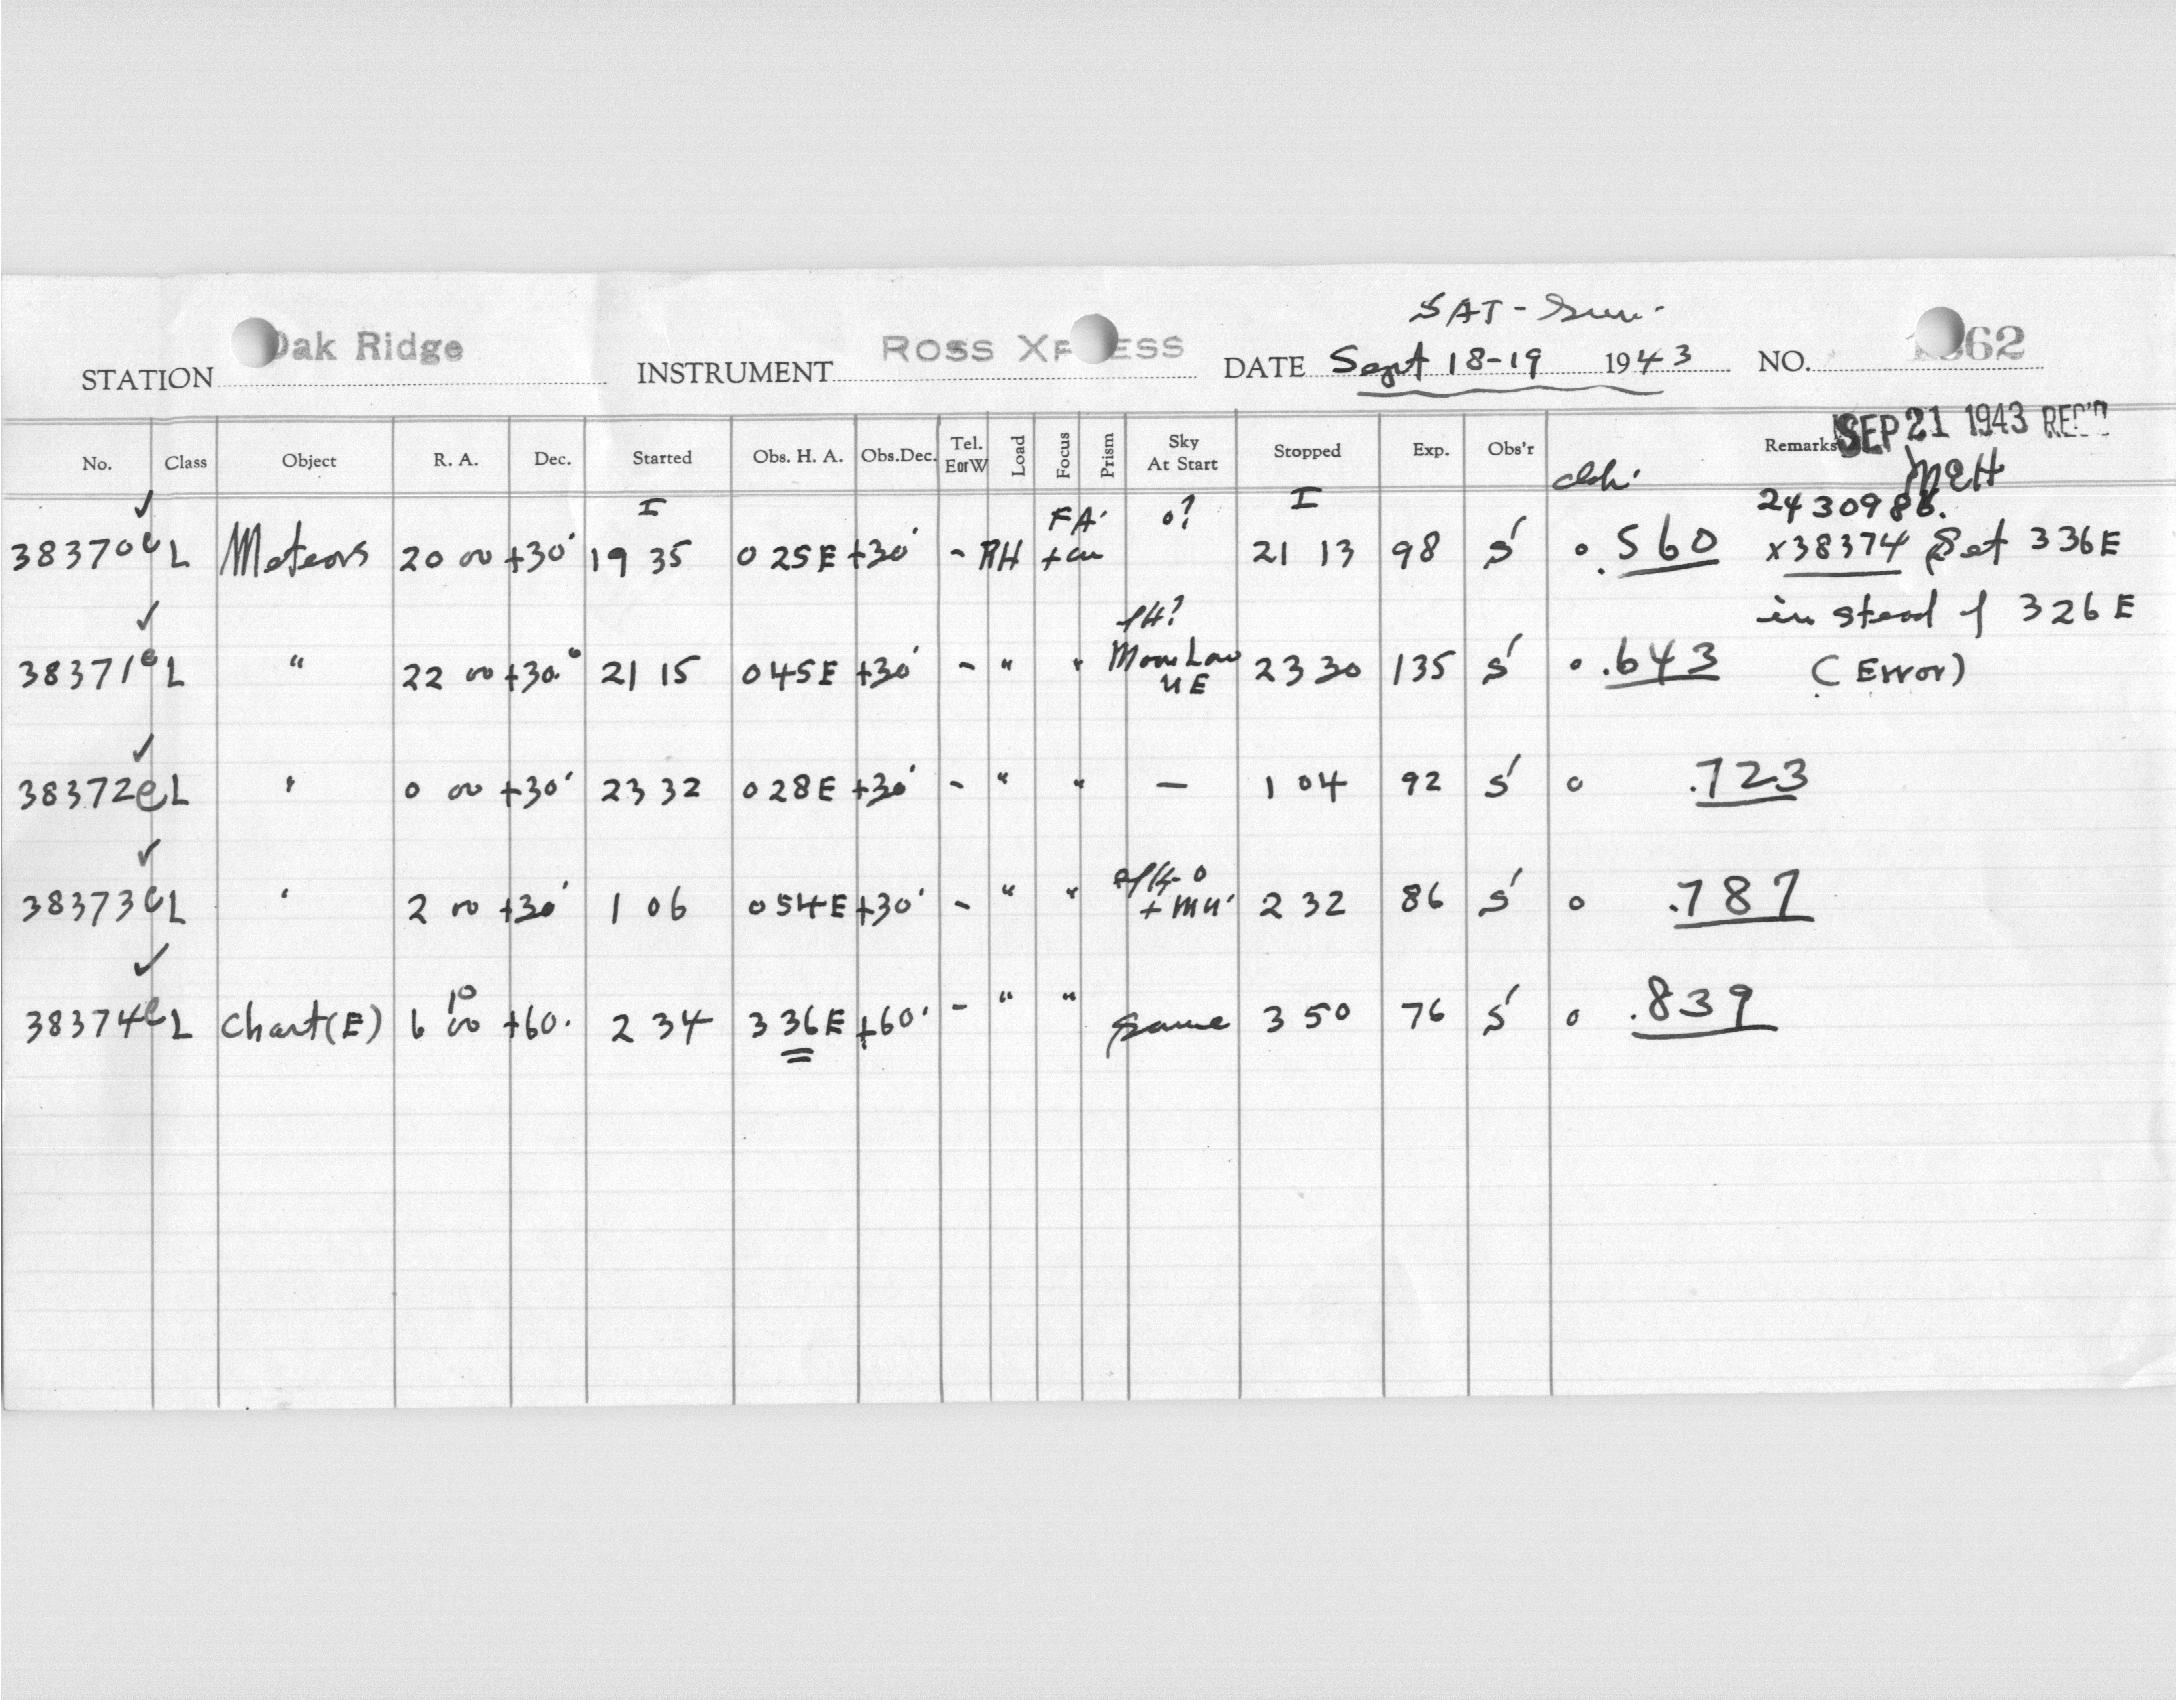 SAT - Sun.
STATION Oak Ridge INSTRUMENT ROSS XPRESS DATE Sept 18-19 1943 NO. 62
SEP 21 1943 REC'D
No. Class Object R. A. Dec. Started Obs. H. A. Obs.Dec. Tel. EorW Load Focus Prism Sky At Start Stopped Exp. Obs'r Remarks
MEH
I FA' 0? I 2430986.
38370 e L Meteors 20 00 +30° 19 35 0 25 E +30° - AH 21 13 98 S' 0 .560 x38374 Set 3 36 E
instead of 3 26 E
38371 e L " 22 00 +30° 21 15 0 45 E +30° - " " Moon Low NE 23 30 135 S' 0 .643 (Error)
38372 e L " 0 00 +30° 23 32 0 28 E +30° - " " — 1 04 92 S' 0 .723
38373 e L " 2 00 +30° 1 06 0 54 E +30° - " " 2 32 86 S' 0 .787
10
38374 e L Chart(E) 6 00 +60° 2 34 3 36 E +60° - " " Same 3 50 76 S' 0 .839